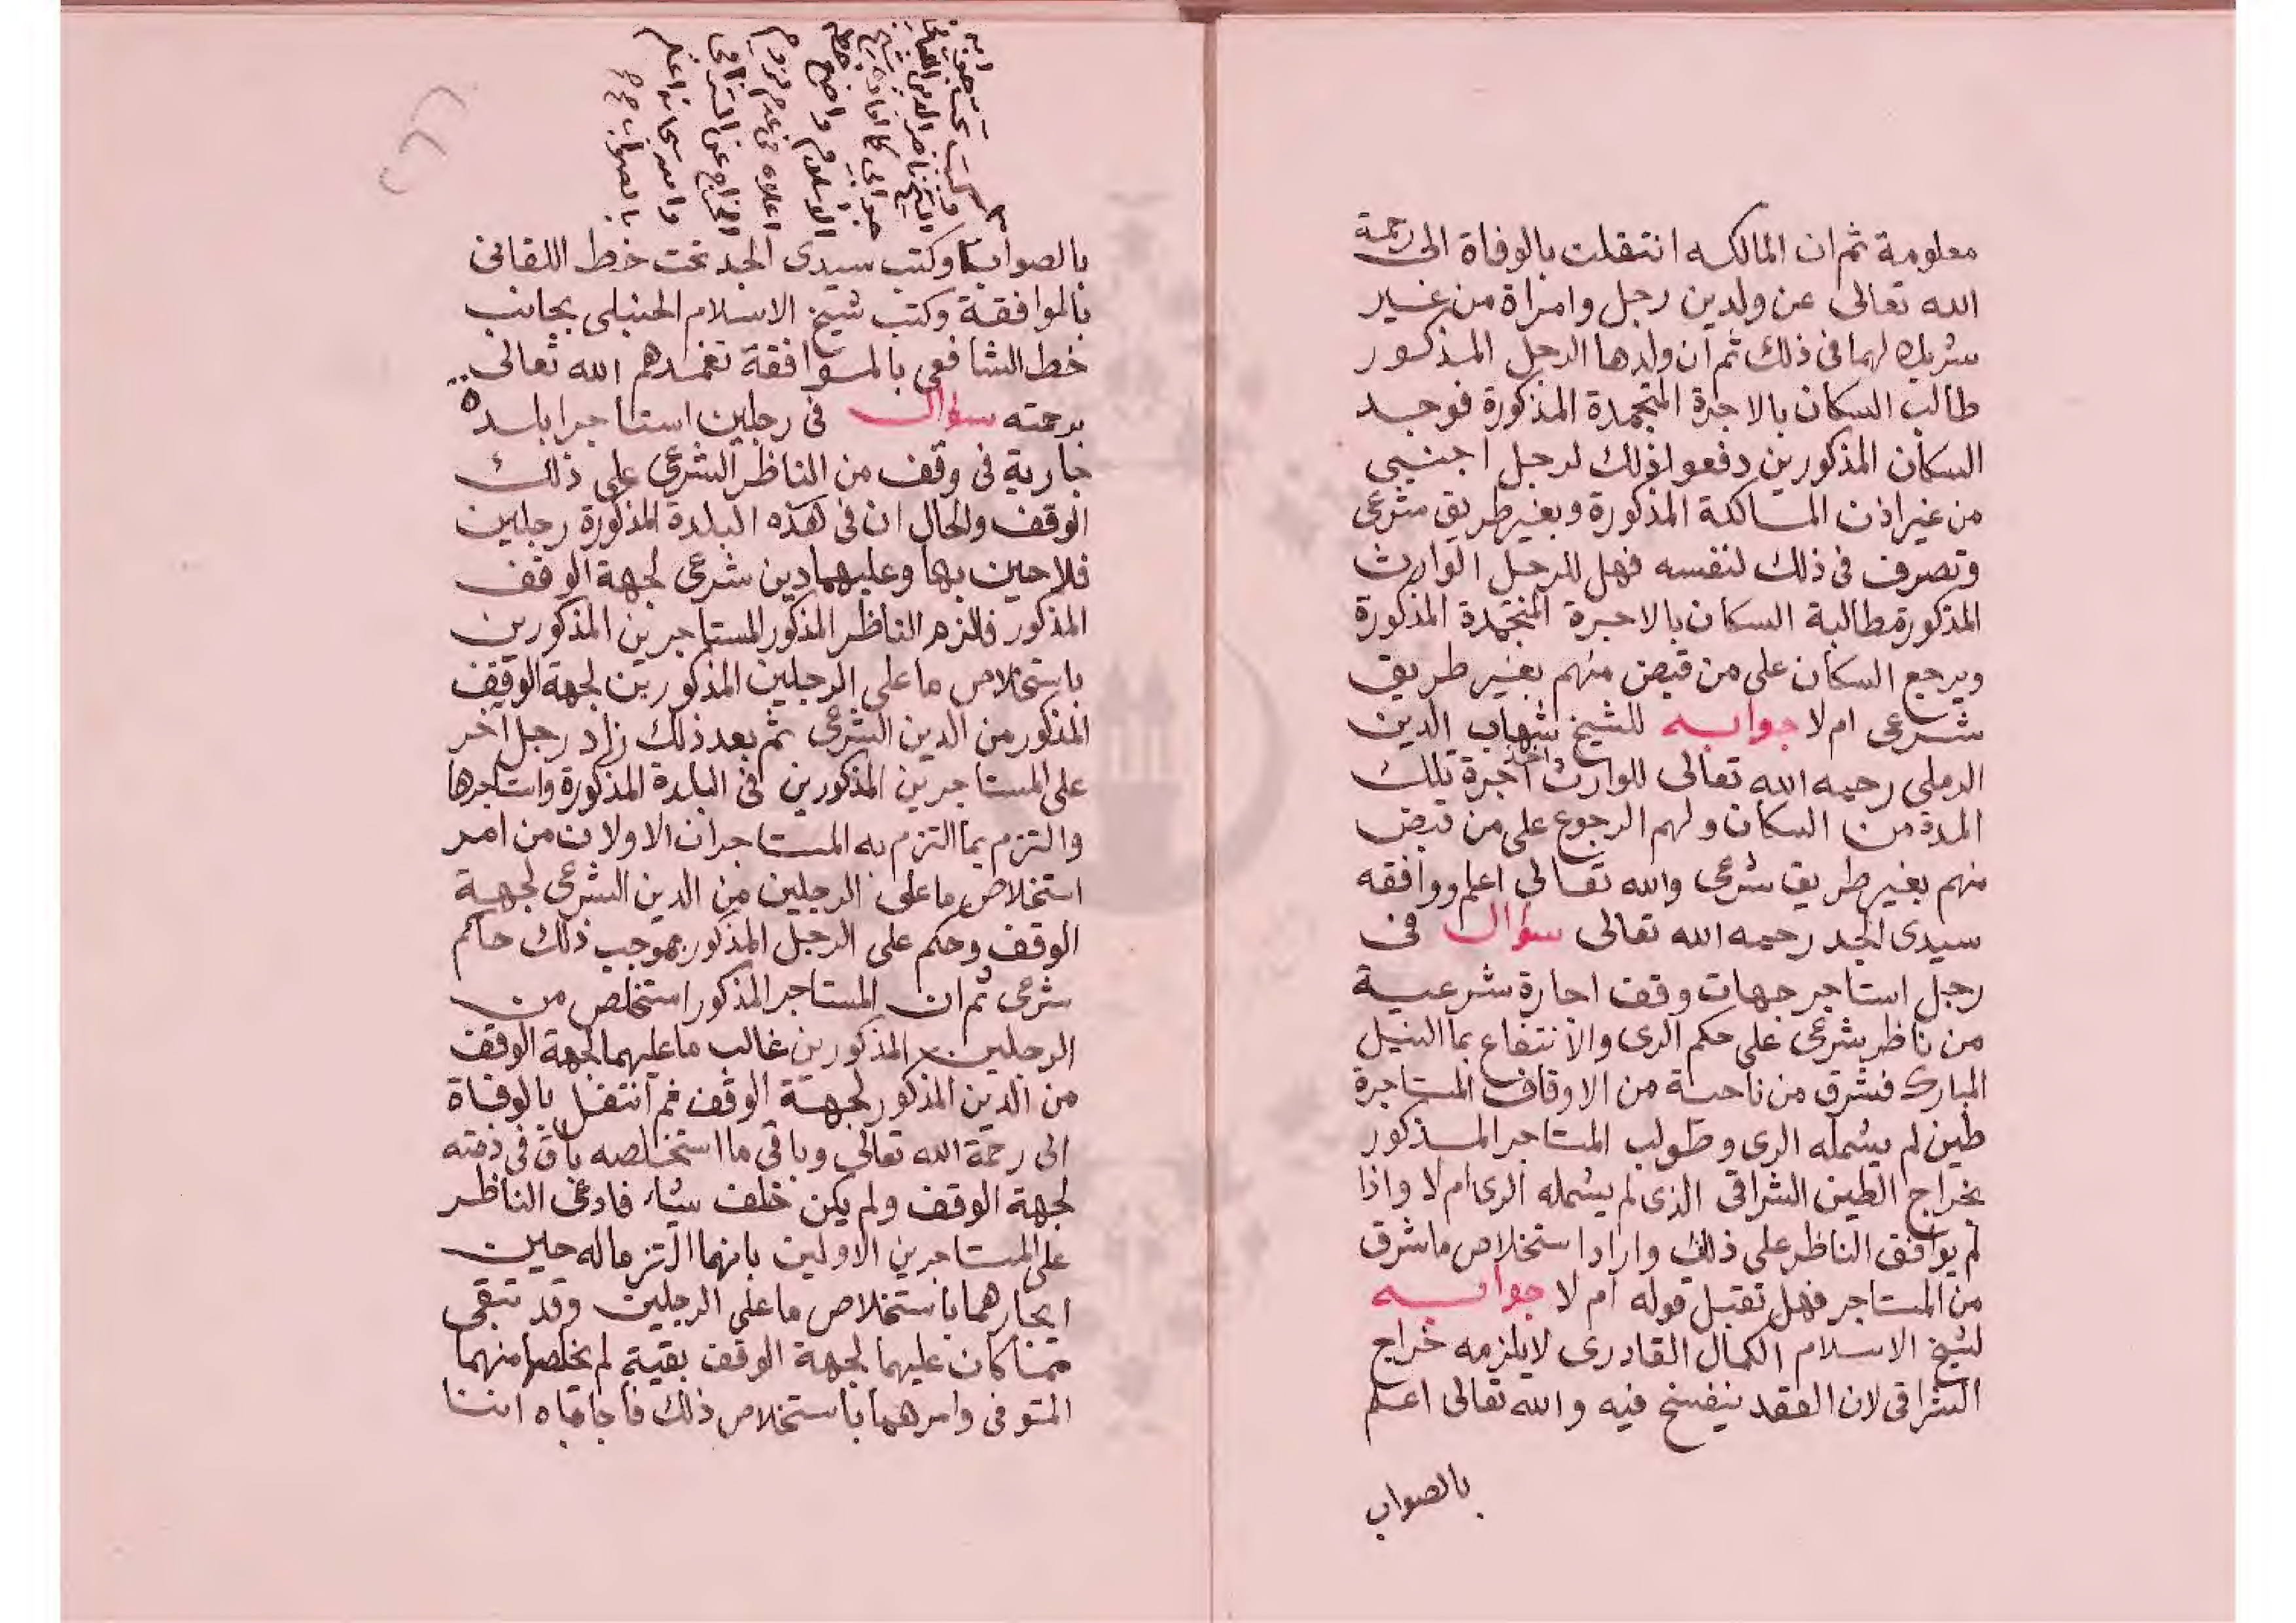 معلومة ثم ان المالكه انتقلت بالوفاة الى رحمة
الله تعالى عن ولدين رجل وامراة من غير
شريك لهما فى ذلك ثم ان ولدها الرجل المذكور
طالب السكان بالاجرة المتجمدة المذكورة فوجد
السكان المذكورين دفعوا ذلك لرجل اجنبى
من غير اذن المالكة المذكورة وبغير طريق شرعى
وتصرف فى ذلك لنفسه فهل للرجل الوارث
المذكورة مطالبة السكان بالاجرة المتجمدة المذكورة
ويرجع السكان على من قبض منهم بغير طريق
شرعى ام لا جوابه للشيخ شهاب الدين
الرملى رحمه الله تعالى للوارث اخذ اجرة تلك
المدة من السكان ولهم الرجوع على من قبض
منهم بغير طريق شرعى والله تعالى اعلم ووافقه
سيدى الجد رحمه الله تعالى سؤال فى
رجل استاجر جهات وقف اجارة شرعية
من ناظر شرعى على حكم الرى والانتفاع بما النيل
المبارك فشرق من ناحية من الاوقاف المستاجرة
طين لم يشمله الرى وطولب المستاجر المذكور
بخراج الطين الشراقى الذى لم يشمله الرى ام لا واذا
لم يوافق الناظر على ذلك واراد استخلاص ما شرق
من المستاجر فهل تقبل قوله ام لا جوابه
لشيخ الاسلام الكمال القادرى لا يلزمه خراج
الشراقى لان العقد ينفسخ فيه والله تعالى اعلم
بالصواب
بالصواب وكتب سيدى الجد تحت خط اللقانى
بالموافقة وكتب شيخ الاسلام الحنبلى بجانب
خط الشافعى بالموافقة تغمدهم الله تعالى
برحمته سؤال فى رجلين استاجرا بلدة
جارية فى وقف من الناظر الشرعى على ذلك
الوقف والحال ان فى هذه البلدة المذكورة رجلين
فلاحين بها وعليهما دين شرعى لجهة الوقف
المذكور فالزم الناظر المذكور المستاجرين المذكورين
باستخلاص ما على الرجلين المذكورين لجهة الوقف
المذكور من الدين الشرعى ثم بعد ذلك زاد رجل اخر
على المستاجرين المذكورين فى البلدة المذكورة واستاجرها
والتزم بما التزم به المستاجران الاولان من امر
استخلاص ما على الرجلين من الدين الشرعى لجهة
الوقف وحكم على الرجل المذكور بموجب ذلك حاكم
شرعى ثم ان المستاجر المذكور استخلص من
الرجلين المذكورين غالب ما عليهما لجهة الوقف
من الدين المذكور لجهة الوقف ثم انتقل بالوفاة
الى رحمة الله تعالى وباقى ما استخلصه باق فى ذمته
لجهة الوقف ولم يكن خلف شياء فادعى الناظر
على المستاجرين الاولين بانهما التزما له حين
ايجارهما باستخلاص ما على الرجلين وقد تبقى
مما كان عليهما لجهة الوقف بقية لم يخلصها منهما
المتوفى وامرهما باستخلاص ذلك فاجاباه اننا
الشيخ ناصر الدين اللقانى
الاسلام واضح
اعلاه من عدم لزوم
الخراج عن الشراقى
والله سبحانه اعلم
بالصواب